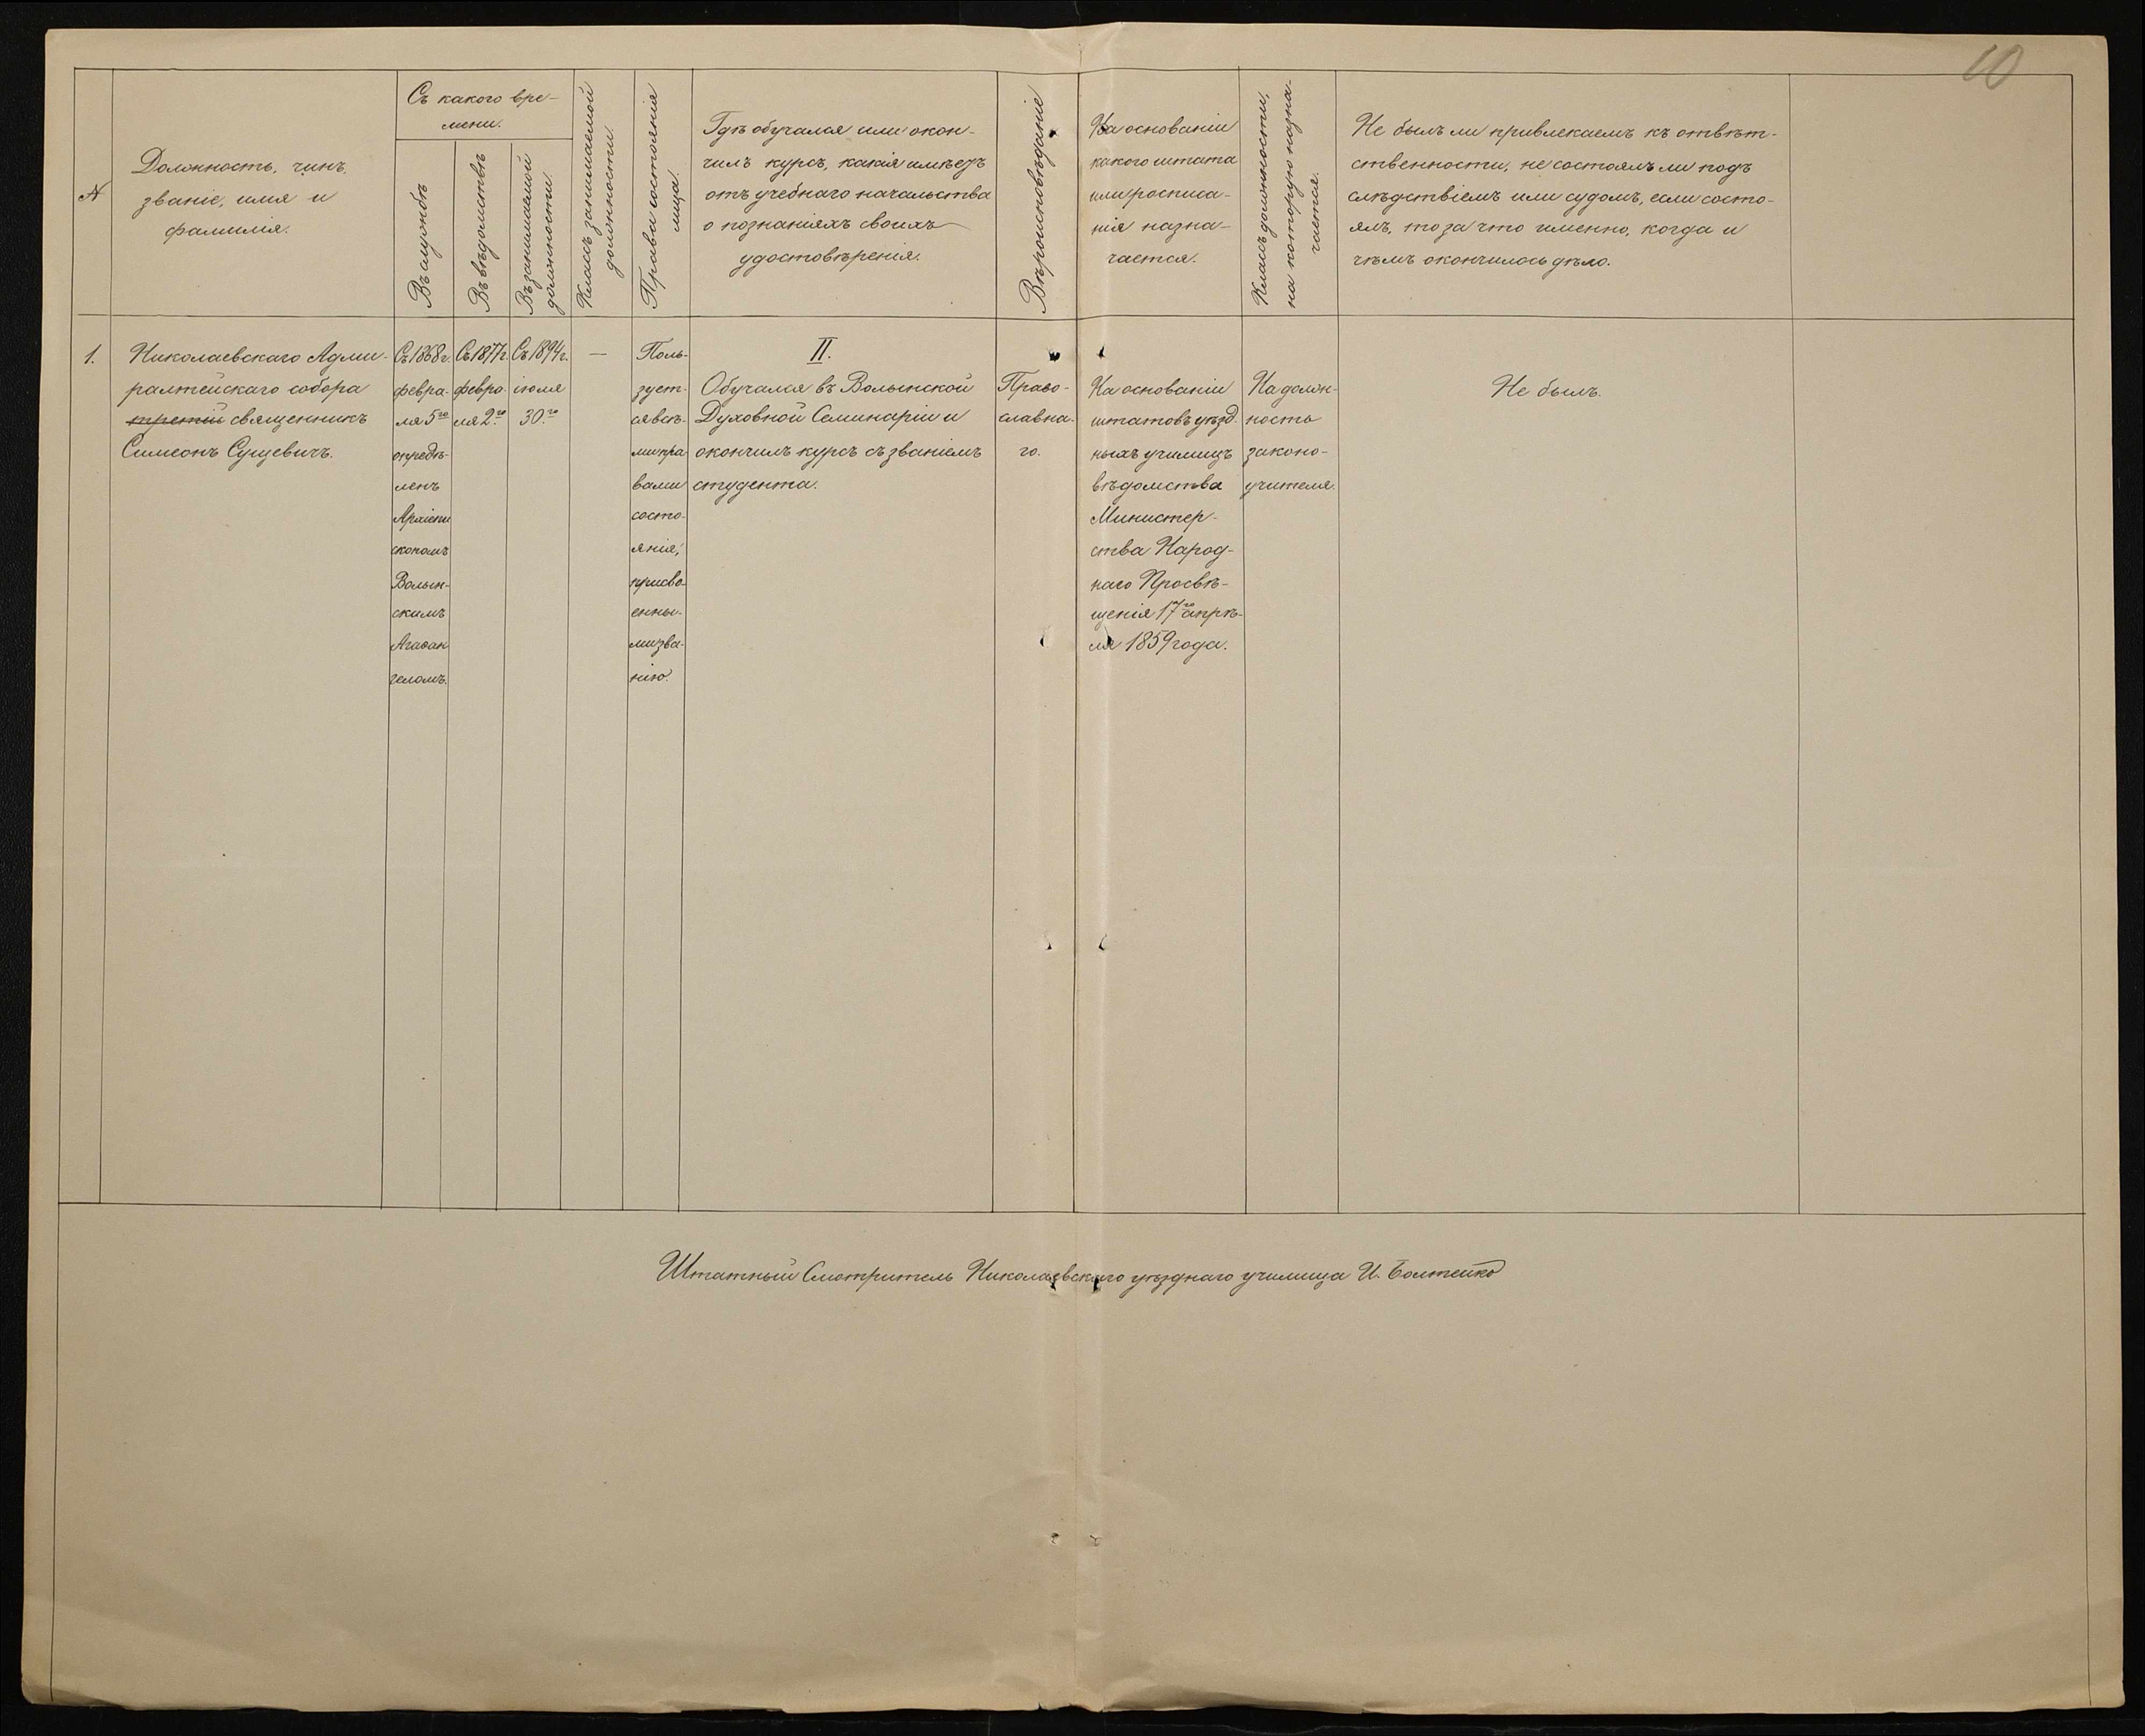 10
№
Должность, чинъ,
званіе, имя и
фамилія.
Съ какого вре-
мени.
Въ службѣ
Въ вѣдомствѣ
Въ занимаемой
должности.
Классъ занимаемой
должности.
Права состоянія
лица.
Гдѣ обучался или окон-
чилъ курсъ, какія имѣетъ
отъ учебнаго начальства
о познаніяхъ своихъ
удостовѣренія.
Вѣроисповѣданіе
На основаніи
какого штата
или росписа-
нія назна-
чается.
Классъ должности,
на которую назна-
чается.
Не былъ ли привлекаемъ къ отвѣт-
ственности, не состоялъ ли подъ
слѣдствіемъ или судомъ, если состо-
ялъ, то за что именно, когда и
чѣмъ окончилось дѣло.
1.
Николаевскаго Адми-
ралтейскаго собора
третій священникъ
Симеонъ
Съ 1868 г.
февра-
ля 5го
опредѣ-
ленъ
Архіепи
скопомъ
Волын-
скимъ
Агаѳан
геломъ.
Съ 1877 г.
февра-
ля 2го
Съ 1894 г.
іюля
30го
—
Поль-
зует-
ся всѣ-
ми пра
вами
состо-
янія,
присво-
енны-
ми зва-
нію.
II.
Обучался въ Волынской
Духовной Семинаріи и
окончилъ курсъ съ званіемъ
студента.
Право-
славна-
го.
На основаніи
штатовъ уѣзд-
ныхъ училищъ
вѣдомства
Министер-
ства Народ-
наго Просвѣ-
щенія 17го апрѣ-
ля 1859 года.
На долж-
ность
законо-
учителя.
Не былъ.
Штатный Смотритель Николаевскаго уѣзднаго училища И. Болтенко